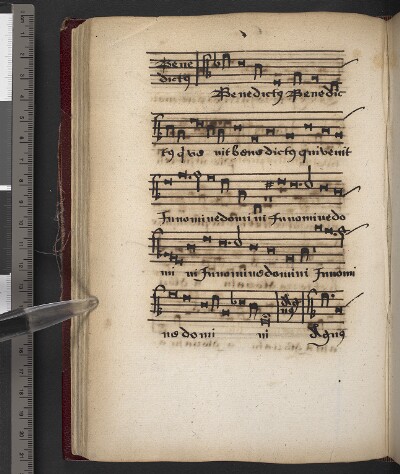 Bene
dictꝰ
Benedictꝰ Benedic
tꝰ qui ve nit benedictꝰ qui venit
In nomine domi ni In nomine do
mi ni In nomine domini In nomi
ne domi ni
Ag
nꝰ
Agnꝰ